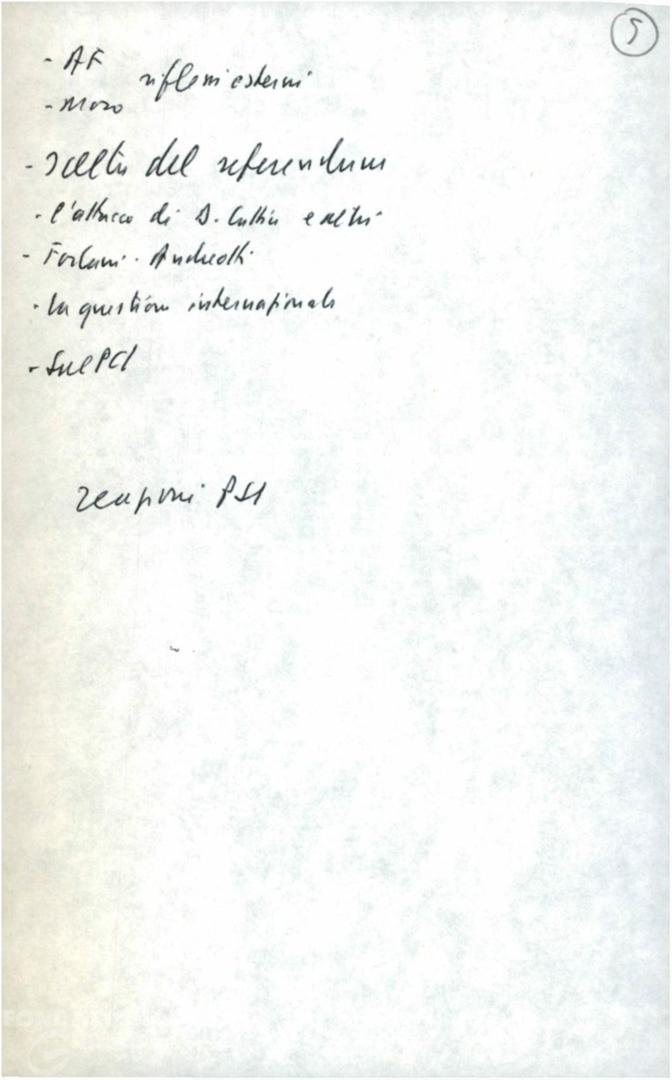 5
- AF
riflessi esterni
- Moro
- scelta del referendum
- l'attacco di D. Cattin e altri
- Forlani - Andreotti
- la questione internazionale
- Sul PCI
reazioni PSI